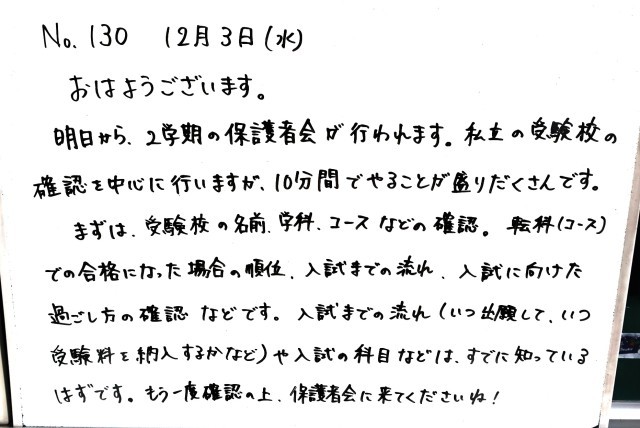 No. 130 12月3日(水)
おはようございます。
明日から、2学期の保護者会が行われます。私立の受験校の
確認を中心に行いますが、10分間でやることが盛りだくさんです。
まずは、受験校の名前、学科、コースなどの確認。転科(コース)
での合格になった場合の順位、入試までの流れ、入試に向けた
過ごし方の確認などです。入試までの流れ(いつ出願して、いつ
受験料を納入するかなど)や入試の科目などは、すでに知っている
はずです。もう一度確認の上、保護者会に来てくださいね!